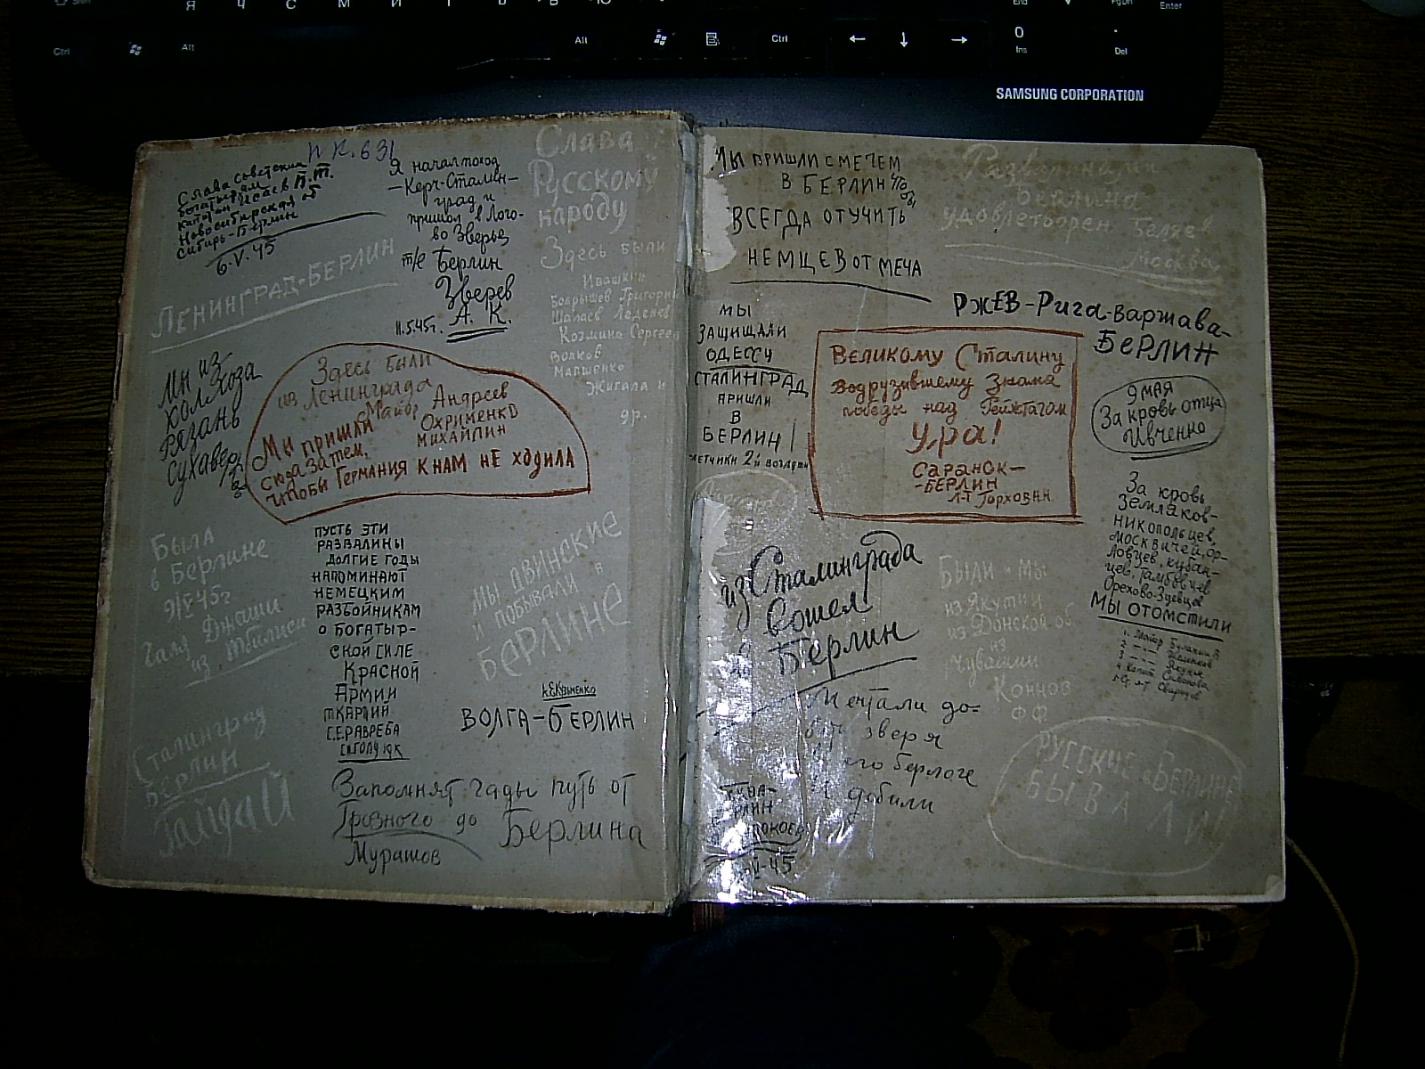 Shift
Я Ч С М И Т Ь Б Ю
End
PgDn
Enter
Ctrl
Alt
Alt
Ctrl
0
Ins
.
Del
SAMSUNG CORPORATION
П К. 631
Слава советским
богатырям
капитан Исаев П.Т.
Новосибирская об
Сибирь-Берлин
6.V.45
Я начал поход
-Керч-Сталин-
град и
пришел в Лого-
во Зверьё
т/е Берлин
Зверев
А. К.
11.5.45г.
Слава
Русскому
народу
Здесь были
Ивашкин
Боярышев Григорий
Шапаев Леденев
Козмина Сергеев
Волков
Мащенко
Жигала и
др.
ЛЕНИНГРАД-БЕРЛИН
Мы из
колхоза
Рязань
Здесь были
из Ленинграда
Майор Андреев
Охрименко
Михайлин
Мы пришли
сюда затем,
чтобы Германия к нам не ходила
Была
в Берлине
9/V 45г
Галя Джаши
из Тбилиси
ПУСТЬ ЭТИ
РАЗВАЛИНЫ
ДОЛГИЕ ГОДЫ
НАПОМИНАЮТ
НЕМЕЦКИМ
РАЗБОЙНИКАМ
О БОГАТЫР-
СКОЙ СИЛЕ
КРАСНОЙ
АРМИИ
МЫ ДВИНСКИЕ
И ПОБЫВАЛИ в
БЕРЛИНЕ
К.Е.Кузьменко
ВОЛГА-БЕРЛИН
Сталинград
Берлин
Гайдай
Запомнят гады путь от
Грозного до Берлина
Мурашов
МЫ ПРИШЛИ С МЕЧЕМ
В БЕРЛИН ЧТОБЫ
ВСЕГДА ОТУЧИТЬ
НЕМЦЕВ ОТ МЕЧА
Развалинами
Берлина
удовлетворен Беляев
Москва
МЫ
ЗАЩИЩАЛИ
ОДЕССУ
СТАЛИНГРАД
ПРИШЛИ
В
БЕРЛИН
РЖЕВ-Рига-Варшава-
БЕРЛИН
Великому Сталину
водрузившему Знамя
победы над Рейхстагом
Ура!
Саранск-
-Берлин
Л-т Горховин
9 МАЯ
За кровь отца
Ивченко
За кровь
земляков-
никопольцев,
москвичей, ор-
ловцев, кубан-
цев, тамбовцев
Орехово-Зуевцев
Мы отомстили
из Сталинграда
вошел
в Берлин
Были мы
из Якутии
из Донской об.
из
Чувашии
Коннов
Ф.Ф.
Мечтали до-
быть зверя
его берлоге
и добили
V-45
РУССКИЕ в БЕРЛИНЕ
БЫВАЛИ